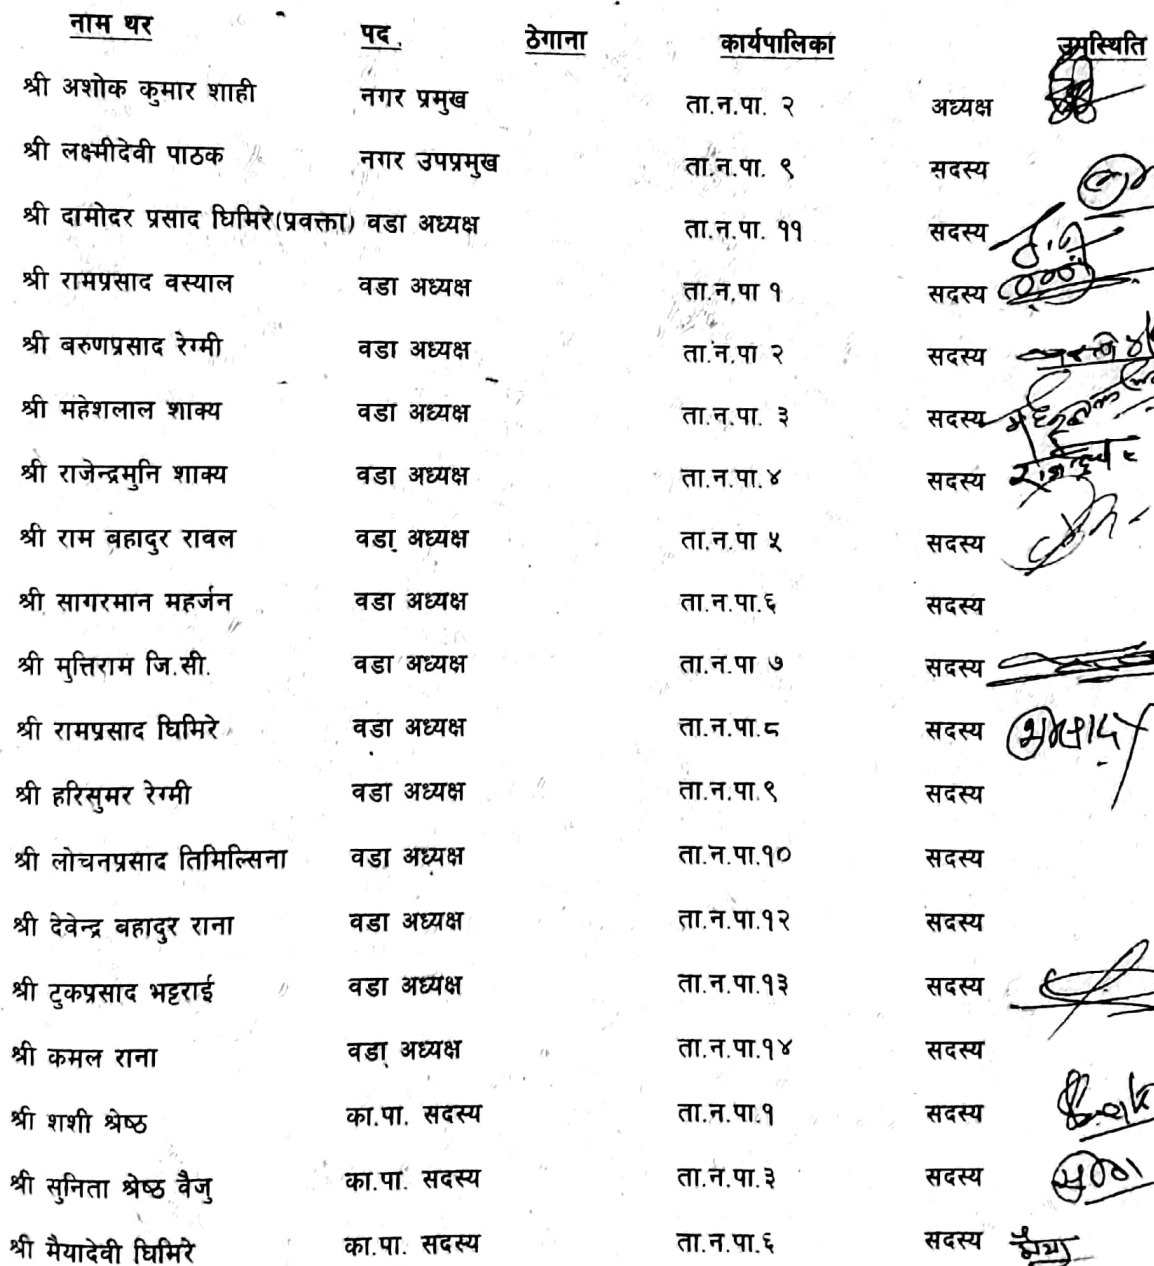 नाम थर पद ठेगाना कार्यपालिका उपस्थिति
श्री अशोक कुमार शाही नगर प्रमुख ता.न.पा. २ अध्यक्ष
श्री लक्ष्मीदेवी पाठक नगर उपप्रमुख ता.न.पा. ९ सदस्य
श्री दामोदर प्रसाद घिमिरे(प्रवक्ता) वडा अध्यक्ष ता.न.पा. ११ सदस्य
श्री रामप्रसाद वस्याल वडा अध्यक्ष ता.न.पा १ सदस्य
श्री बरुणप्रसाद रेग्मी वडा अध्यक्ष ता.न.पा २ सदस्य
श्री महेशलाल शाक्य वडा अध्यक्ष ता.न.पा. ३ सदस्य
श्री राजेन्द्रमुनि शाक्य वडा अध्यक्ष ता.न.पा.४ सदस्य
श्री राम बहादुर रावल वडा अध्यक्ष ता.न.पा ५ सदस्य
श्री सागरमान महर्जन वडा अध्यक्ष ता.न.पा.६ सदस्य
श्री मुत्तिराम जि.सी. वडा अध्यक्ष ता.न.पा ७ सदस्य
श्री रामप्रसाद घिमिरे वडा अध्यक्ष ता.न.पा.८ सदस्य
श्री हरिसुमर रेग्मी वडा अध्यक्ष ता.न.पा.९ सदस्य
श्री लोचनप्रसाद तिमिल्सिना वडा अध्यक्ष ता.न.पा.१० सदस्य
श्री देवेन्द्र बहादुर राना वडा अध्यक्ष ता.न.पा.१२ सदस्य
श्री टुकप्रसाद भट्टराई वडा अध्यक्ष ता.न.पा.१३ सदस्य
श्री कमल राना वडा अध्यक्ष ता.न.पा.१४ सदस्य
श्री शशी श्रेष्ठ का.पा. सदस्य ता.न.पा.१ सदस्य
श्री सुनिता श्रेष्ठ वैजु का.पा. सदस्य ता.न.पा.३ सदस्य
श्री मैयादेवी घिमिरे का.पा. सदस्य ता.न.पा.६ सदस्य मैया